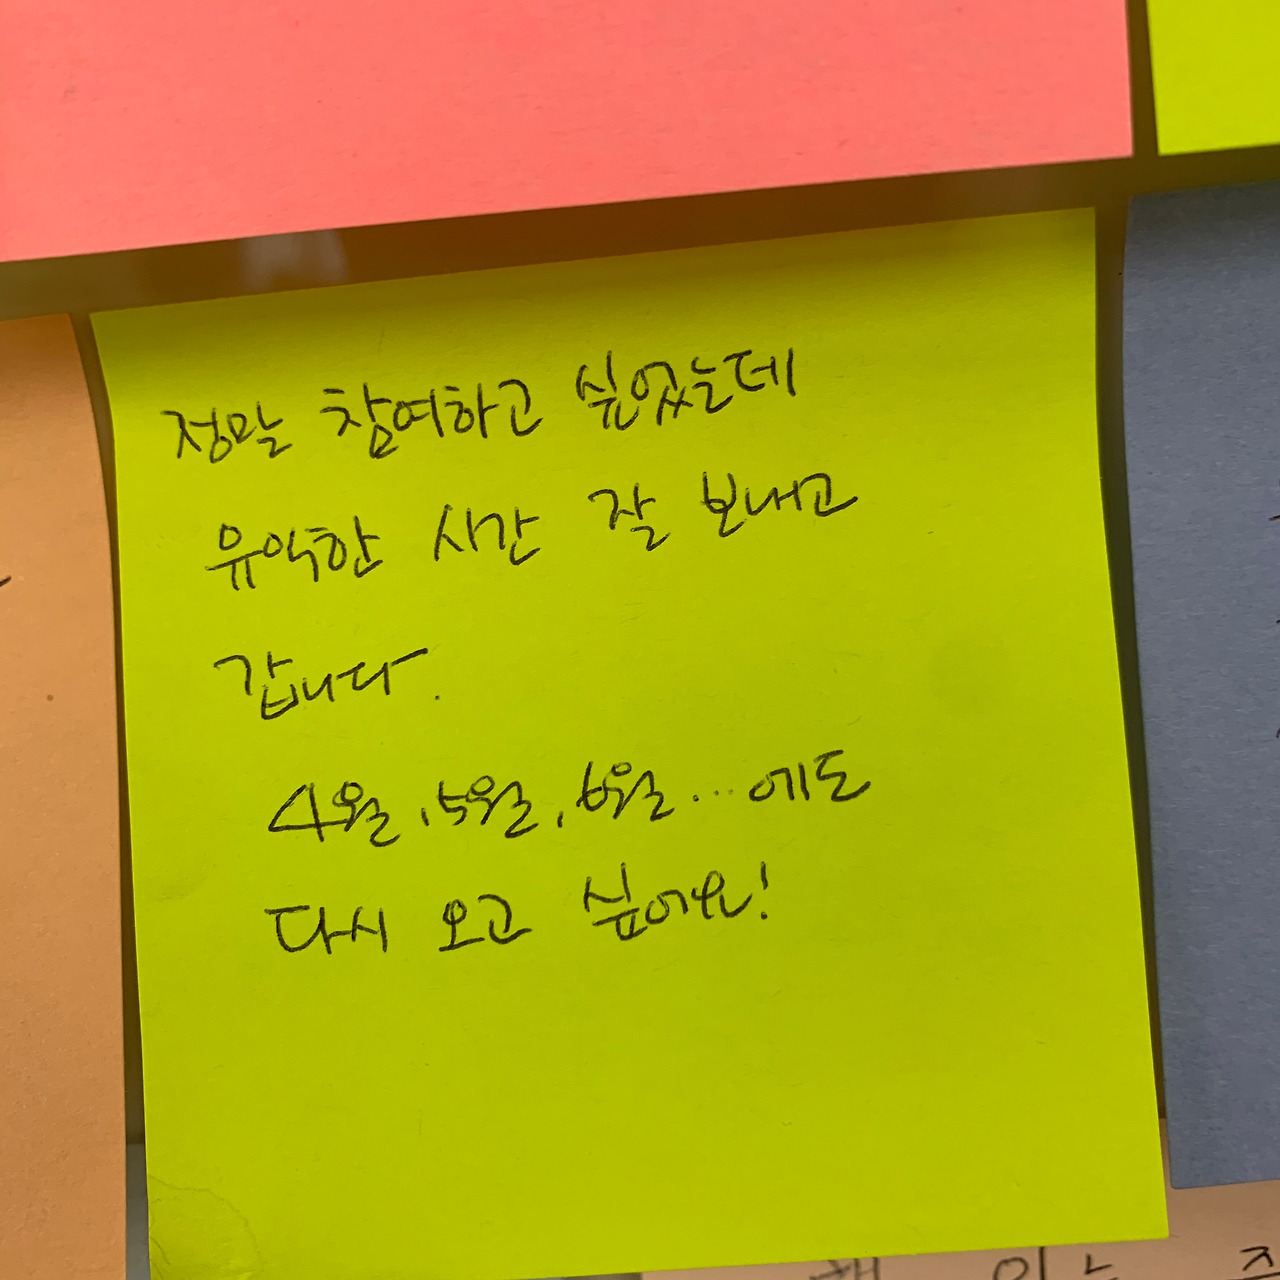 정말 참여하고 싶었는데
유익한 시간 잘 보내고
갑니다.
4월, 5월, 6월...에도
다시 오고 싶어요!